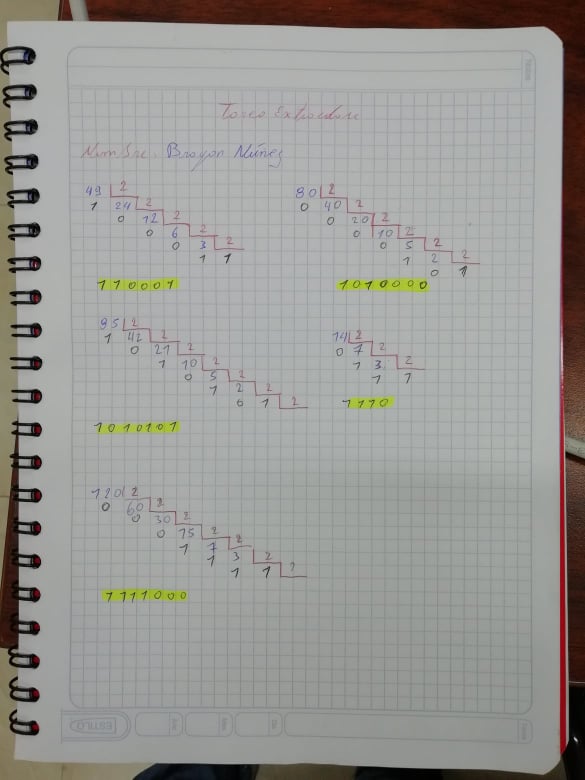 Tarea Extraclase
Nombre: Brayan Núñez
49 2
1 24 2
0 12 2
0 6 2
0 3 2
1 1
110001
80 2
0 40 2
0 20 2
0 10 2
0 5 2
1 2 2
0 1
1010000
85 2
1 42 2
0 21 2
1 10 2
0 5 2
1 2 2
0 1 2
1010101
14 2
0 7 2
1 3 2
1 1
1110
120 2
0 60 2
0 30 2
0 15 2
1 7 2
1 3 2
1 1 2
1111000
ESTILO